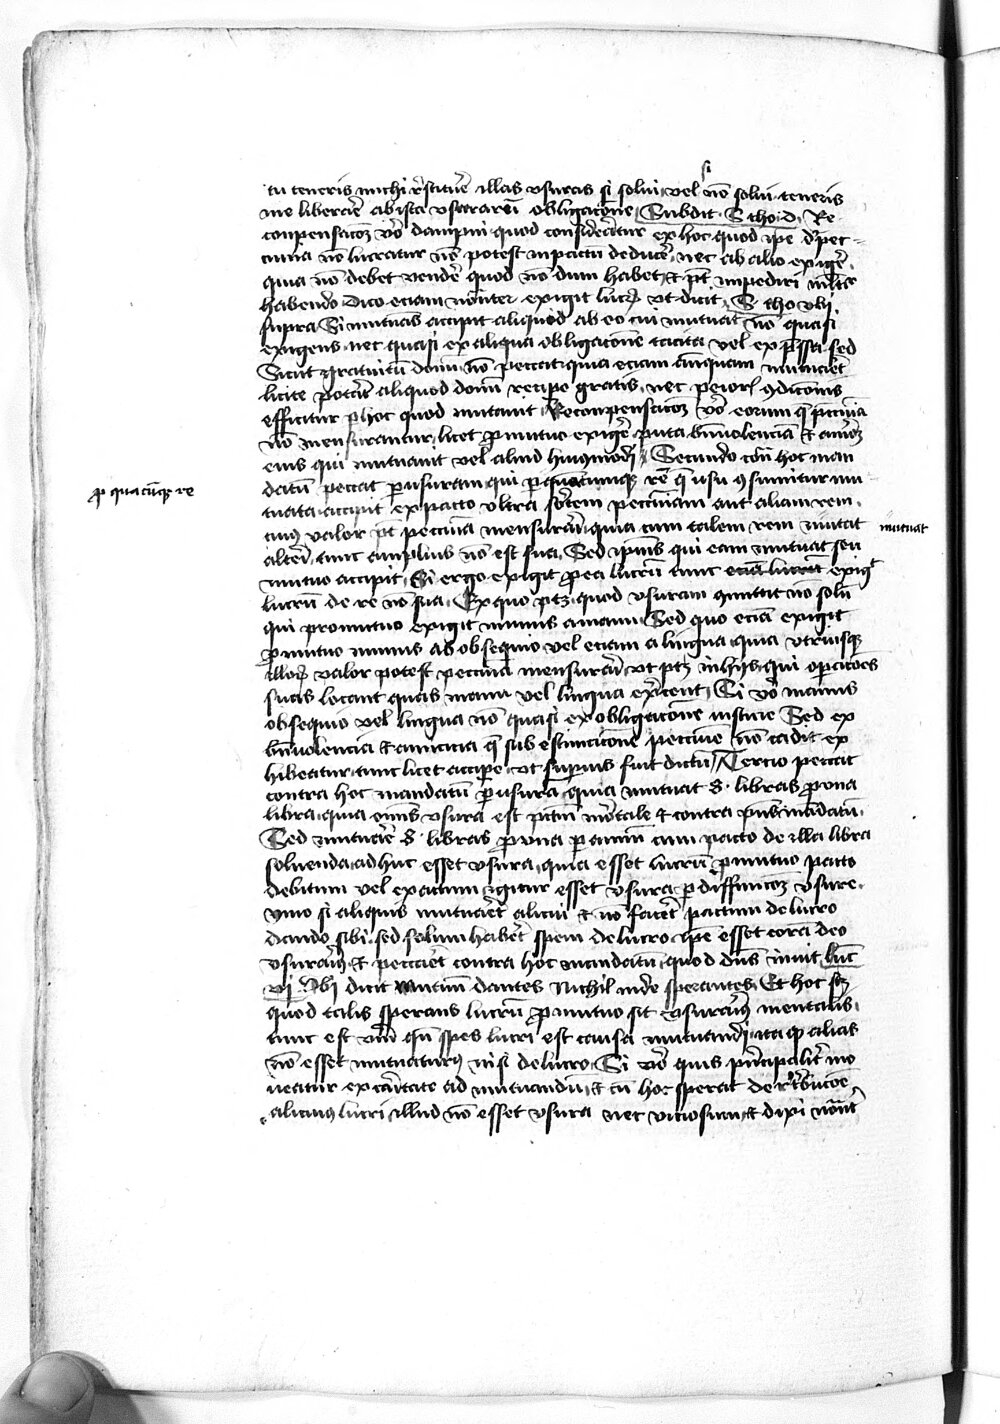 si
tu teneris michi restituere illas usuras si solui vel non solui teneris
me liberare ab ista usurarum obligacione Subdit S tho d Re
conpensacionem vero dampni quod consideratur ex hoc quod ipse de pec
cunia non lucratur non potest in pactum deducere nec ab alio exigere
quia non debet vendere quod non dum habet et potest impediri multipliciter
habendo Dico eciam exigit lucrum ut dicit S tho ubi
supra Si mutuans accipit aliquid ab eo cui mutuat non quasi
exigens nec quasi ex aliqua obligacione tacita vel expressa sed
Sicut gratuitum donum non peccat quia eciam antequam mutuaret
licite poterat aliquod donum recipere gratis nec peioris condicionis
efficitur per hoc quod mutauit Recompensacionem vero eorum que peccunia
non mensurantur licet pro mutuo exigere puta beniuolenciam et amorem
eius qui mutuauit vel aliud huiusmodi Secundo contra hoc man
datum peccat per usuram qui pro quacumque re que usu consumitur mu
pro quacumque re
tuata accipit ex pacto ultra sortem pecuniam aut aliam rem
cuius valor potest peccunia mensurari quia cum talem rem mutat
mutuat
alteri tunc amplius non est sua Sed ipsius qui eam mutuat seu
mutuo accipit Si ergo exigit pro ea lucrum tunc eciam lucrum exigit
lucrum de re non sua Ex quo patet quod usuram committit non solum
qui pro mutuo exigit munus a manu Sed quo eciam exigit
pro mutuo munus ab obsequio vel eciam a lingua quia utriusque
illorum valor potest peccunia mensurari ut patet in hijs qui operaciones
suas locant quas manu vel lingua exercent Si vero munus
obsequio vel lingua non quasi ex obligacione iusticie Sed ex
beniuolencia et amicicia que sub estimacione peccunie non cadit ex
hibeatur tunc licet accipere ut superius fuit dictum Tercio peccat
contra hoc mandatum per usuram quia mutuat 8 libras pro una
libra quia omnis usura est peccatum mortale et contra presens mandatum
Sed mutuare 8 libras pro una per annum cum pacto de illa libra
soluenda adhuc esset usura quia esset lucrum pro mutuo pacto
debitum vel exactum igitur esset usura per diffinicionem usure
ymo si aliquis mutuaret alicui et non faceret pactum de lucro
dando sibi sed solum haberet spem de lucro ipse esset coram deo
usurarius et peccaret contra hoc mandatum quod dominus innuit Luc
vj Ubi dicit mutuum dantes Nichil inde sperantes Et hoc scilicet
quod talis sperans lucrum pro mutuo sit usurarius mentalis
tunc est verum quando spes lucri est causa mutuandi ita quod alias
non esset mutuaturus nisi de lucro Si vero quis principaliter mo
ueatur ex caritate ad mutuandum et cum hoc sperat de retribucione
alicuius lucri illud non esset usura nec viciosum et dixi